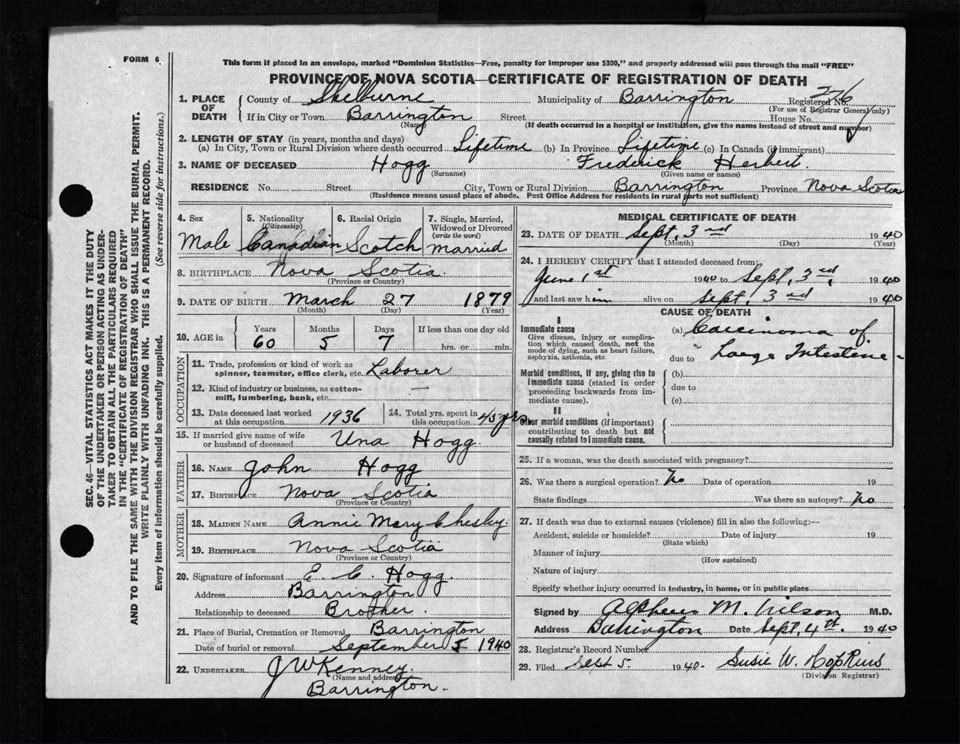 FORM 6
This form if placed in an envelope, marked "Dominion Statistics—Free, penalty for improper use $300," and properly addressed will pass through the mail "FREE"
PROVINCE OF NOVA SCOTIA—CERTIFICATE OF REGISTRATION OF DEATH
1. PLACE OF DEATH County of Shelburne Municipality of Barrington Registered No. 276
(For use of Registrar General only)
If in City or Town Barrington Street House No.
(Name) (If death occurred in a hospital or institution, give the name instead of street and number)
2. LENGTH OF STAY (in years, months and days)
(a) In City, Town or Rural Division where death occurred Lifetime (b) In Province Lifetime (c) In Canada (if immigrant)
3. NAME OF DECEASED Hogg Frederick Herbert.
(Surname) (Given name or names)
RESIDENCE No. Street City, Town or Rural Division Barrington Province Nova Scotia
(Residence means usual place of abode. Post Office Address for residents in rural parts not sufficient)
4. Sex Male
5. Nationality (Citizenship) Canadian
6. Racial Origin Scotch
7. Single, Married, Widowed or Divorced (write the word) married
8. BIRTHPLACE Nova Scotia.
(Province or Country)
9. DATE OF BIRTH March 27 1879
(Month) (Day) (Year)
10. AGE in Years 60 Months 5 Days 7 If less than one day old hrs. or min.
OCCUPATION
11. Trade, profession or kind of work as spinner, teamster, office clerk, etc. Laborer
12. Kind of industry or business, as cotton-mill, lumbering, bank, etc.
13. Date deceased last worked at this occupation 1936
14. Total yrs. spent in this occupation 45 yrs
15. If married give name of wife or husband of deceased Una Hogg.
FATHER
16. NAME John Hogg
17. BIRTHPLACE Nova Scotia
(Province or Country)
MOTHER
18. MAIDEN NAME Annie Mary Chesley.
19. BIRTHPLACE Nova Scotia
(Province or Country)
20. Signature of informant E. C. Hogg.
Address Barrington
Relationship to deceased Brother.
21. Place of Burial, Cremation or Removal Barrington
Date of burial or removal September 5 1940
22. UNDERTAKER J W Kenney.
(Name and address)
Barrington.
MEDICAL CERTIFICATE OF DEATH
23. DATE OF DEATH Sept, 3rd 1940
(Month) (Day) (Year)
24. I HEREBY CERTIFY that I attended deceased from:
June 1st 1940 to Sept, 3rd, 1940
and last saw him alive on Sept. 3rd 1940
CAUSE OF DEATH
I
Immediate cause
Give disease, injury or complication which caused death, not the mode of dying, such as heart failure, asphyxia, asthenia, etc.
(a) Carcinoma of
due to Large Intestine
Morbid conditions, if any, giving rise to immediate cause (stated in order proceeding backwards from immediate cause).
(b)
due to
(c)
II
Other morbid conditions (if important) contributing to death but not causally related to immediate cause.
25. If a woman, was the death associated with pregnancy?
26. Was there a surgical operation? No Date of operation 19
State findings Was there an autopsy? No
27. If death was due to external causes (violence) fill in also the following:—
Accident, suicide or homicide? Date of injury 19
(State which)
Manner of injury
(How sustained)
Nature of injury
Specify whether injury occurred in industry, in home, or in public place
Signed by Alpheus M. Wilson M.D.
Address Barrington Date Sept, 4th. 1940
28. Registrar's Record Number
29. Filed Sept 5 1940. Susie W. Hopkins
(Division Registrar)
SEC. 46—VITAL STATISTICS ACT MAKES IT THE DUTY
OF THE UNDERTAKER OR PERSON ACTING AS UNDER-
TAKER TO OBTAIN ALL THE PARTICULARS REQUIRED
IN THE "CERTIFICATE OF REGISTRATION OF DEATH"
AND TO FILE THE SAME WITH THE DIVISION REGISTRAR WHO SHALL ISSUE THE BURIAL PERMIT.
WRITE PLAINLY WITH UNFADING INK. THIS IS A PERMANENT RECORD.
Every item of information should be carefully supplied. (See reverse side for instructions.)